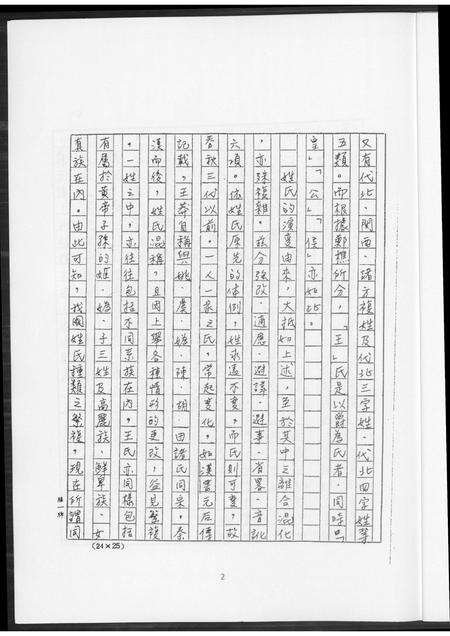 又有代北、關西、諸方複姓及代北三字姓、代北四字姓等
五類。而根據鄭樵所分，「王」氏是以爵為氏者，同時呼
皇」「公」「侯」亦如此。
姓氏的演變由來，大抵如上述，至於其中之離合混化
，亦殊複雜。茲分強改、適應、避諱、避事、省畧、音訛
六項。依姓氏原先的体例，姓永遠不變，而氏則可變，故
春秋三代以前，一人一家之氏，常起變化。如漢書元后傳
記載，王莽自稱與姚、虞、媯、陳、胡、田諸氏同宗。秦
漢而後，姓氏混稱，且因上舉各種情形的更改，益見繁複
。一姓之中，亦往往包括不同宗族在內。王氏亦同樣包括
有屬於黃帝子孫的姬、媯、子三姓及高麗族、鮮卑族、女
真族在內。由此可知，我國姓氏種類之繁複，現在所謂同
(24×25)
2